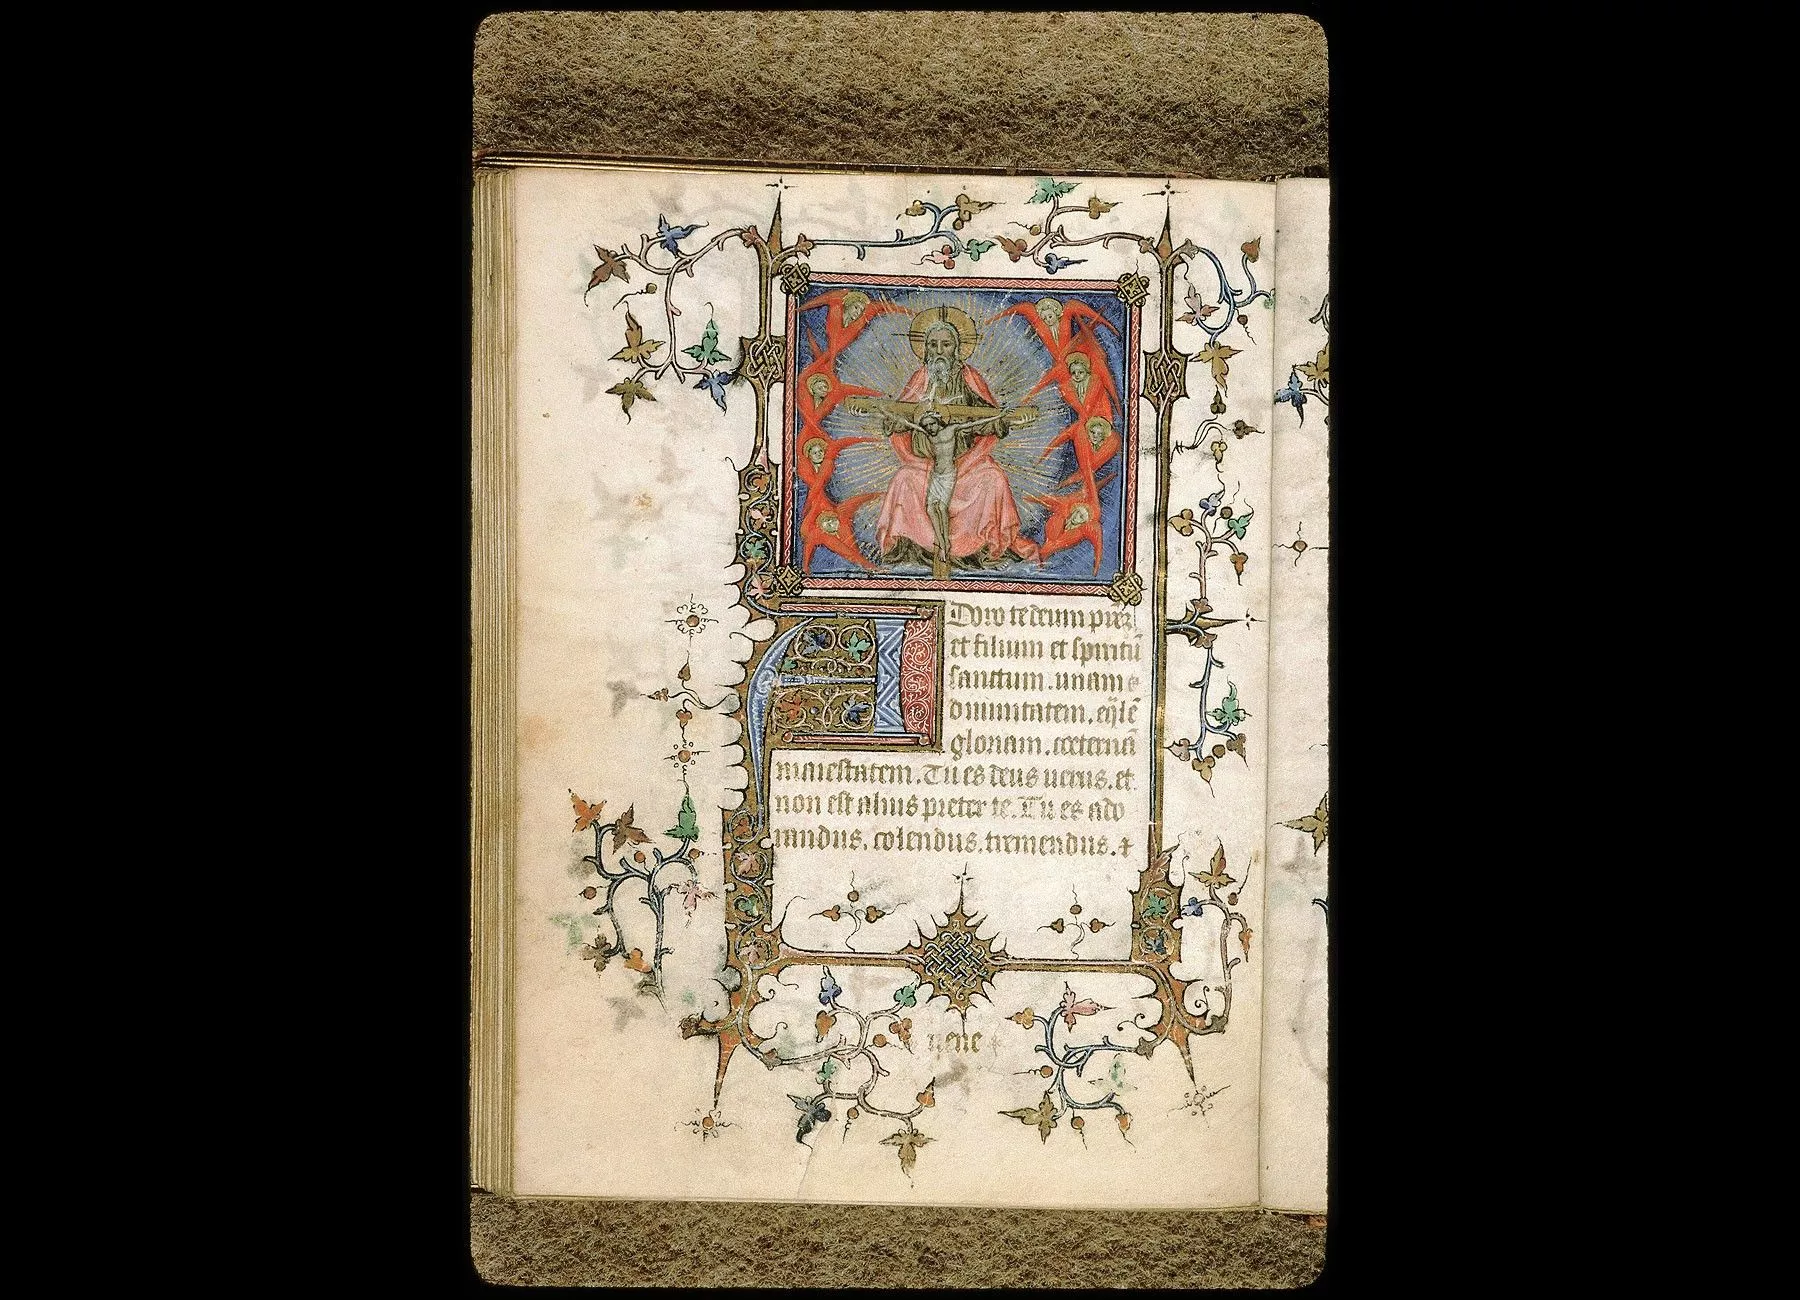 Adoro te deum prēꝫ
et filium et spiritū
sanctum. unam
diuinitatem. eq̄lē
gloriam. coeternā
maiestatem. Tu es deus uerus. et
non est alius preter te. Tu es ado
randus. colendus. tremendus. ⁊